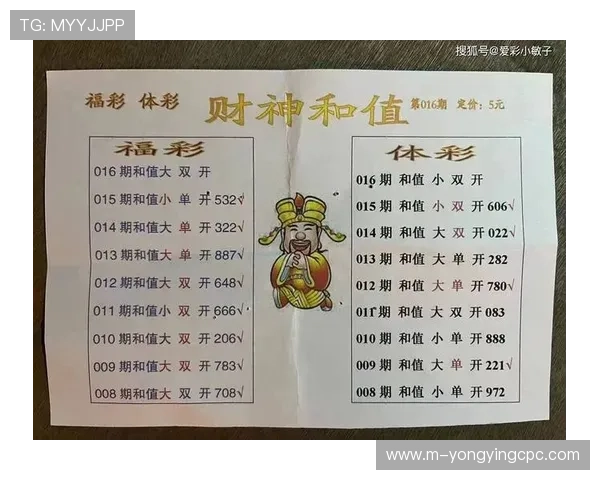 TG: MYYJJPP
搜狐号@爱彩小敏子
福彩 体彩 财神和值 第016期 定价：5元
福彩
016期和值大 双 开
015期和值小 单 开532√
014期和值大 单 开322√
013期和值大 单 开887√
012期和值大 双 开648√
011期和值小 双 开666√
010期和值大 双 开206√
009期和值大 双 开783√
008期和值大 双 开708√
体彩
016期 和值 小 双 开
015期 和值 小 双 开606√
014期 和值 大 双 开022√
013期 和值 大 单 开282
012期 和值 大 单 开780√
011期 和值 大 双 开083
010期 和值 小 单 开888
009期 和值 大 单 开221√
008期 和值 小 单 开972
www.m-yongyingcpc.com